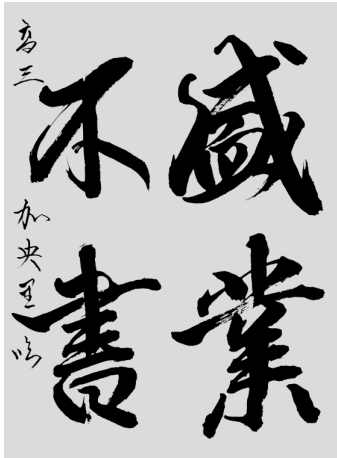 盛業
不書
高三
加央里